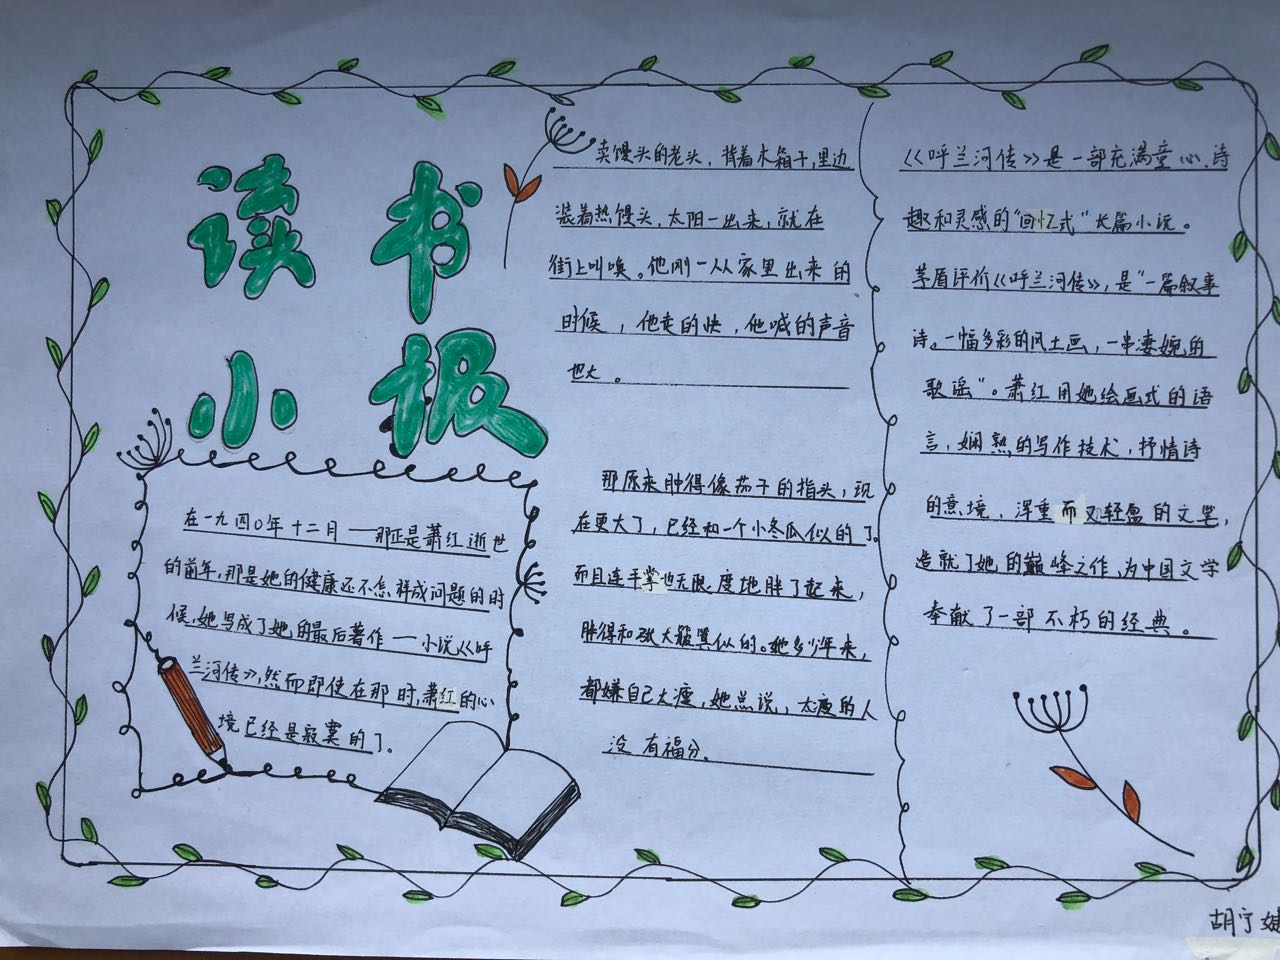 读书
小报
在一九四〇年十二月——那正是萧红逝世
的前年,那是她的健康还不怎样成问题的时
候,她写成了她的最后著作——小说《呼
兰河传》,然而即使在那时,萧红的心
境已经是寂寞的了。
卖馒头的老头,背着木箱子,里边
装着热馒头,太阳一出来,就在
街上叫唤。他刚一从家里出来的
时候,他走的快,他喊的声音
也大。
那原来肿得像茄子的指头,现
在更大了,已经和一个小冬瓜似的了。
而且连手掌也无限度地胖了起来,
胖得和张大簸箕似的。她多少年来,
都嫌自己太瘦,她总说,太瘦的人
没有福分。
《呼兰河传》是一部充满童心、诗
趣和灵感的“回忆式”长篇小说。
茅盾评价《呼兰河传》,是“一篇叙事
诗。一幅多彩的风土画,一串凄婉的
歌谣”。萧红用她绘画式的语
言,娴熟的写作技术,抒情诗
的意境,浑重而又轻盈的文笔,
造就了她的巅峰之作,为中国文学
奉献了一部不朽的经典。
胡宁